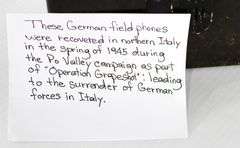 These German field phones
were recovered in northern Italy
in the spring of 1945 during
the Po Valley campaign as part
of "Operation Grapeshot"; leading
to the surrender of German
forces in Italy.